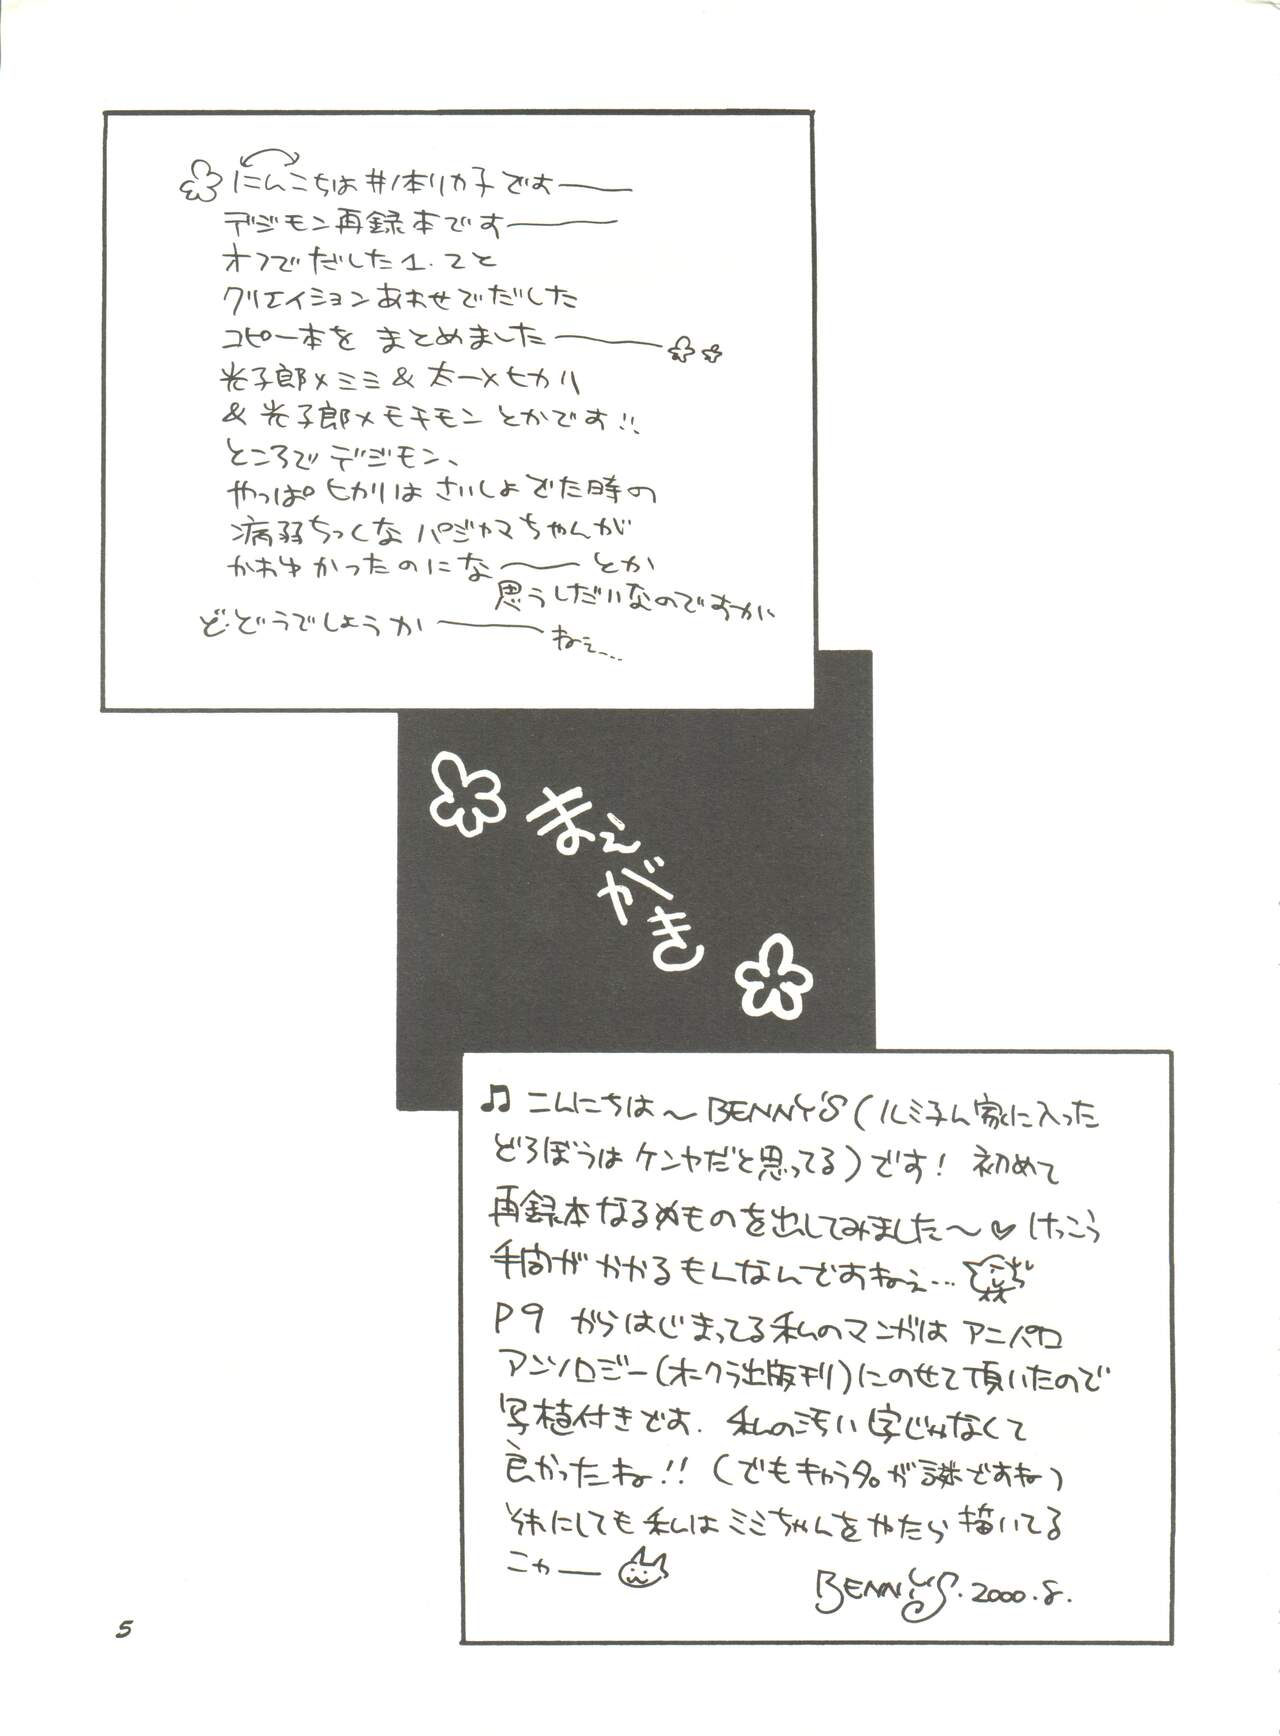 にんこちは 井ノ本リカ子ですーー
デジモン再録本ですーー
オフでだした1.2と
クリエイションあわせでだした
コピー本を まとめましたーー
光子郎×ミミ&太一×ヒカリ
&光子郎×モチモン とかです!!
ところで デジモン、
やっぱ ヒカリは さいしょ でた時の
病弱ちっくな パジャマちゃんが
かわゆかったのにな〜〜 とか
思うしだいなのですが
ど・どうでしょうかーー ねぇ…
まえがき
♫ こんにちは〜 BENNY'S (ルミ子ん家に入った
どろぼうは ケンヤだと思ってる)です! 初めて
再録本なるめものを出してみました〜♡ けっこう
手間が かかるもんなんですねぇ…
P9 からはじまってる私のマンガは アニパロ
アンソロジー(オークラ出版刊)にのせて頂いたので
写植付きです. 私の汚い字じゃなくて
良かったね!! (でもキャラ名が謎ですね)
それにしても 私は ミミちゃんを やたら 描いてる
ニャー
BENNY'S.2000.8.
5